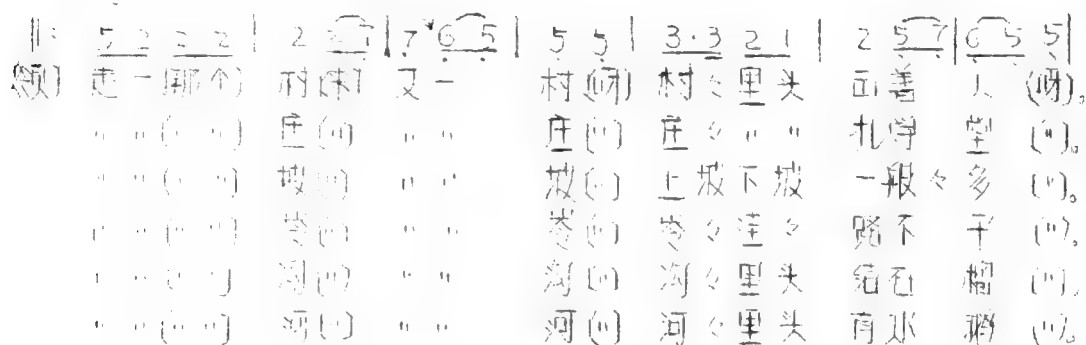 ‖: 5 2 2 2 | 2 2 7 | 7 6 5 | 5 5 | 3·3 2 1 | 2 5 7 | 6 5 5 |
(领) 走一(那个) 村(来) 又一 村(呀) 村々里头 出善人(呀)。
" " (" ") 庄(") " " 庄(") 庄々 " " 扎学堂(")。
" " (" ") 坡(") " " 坡(") 上坡下坡 一般々多(")。
" " (" ") 岺(") " " 岺(") 岺々洼々 路不平(")。
" " (" ") 沟(") " " 沟(") 沟々里头 结石榴(")。
" " (" ") 河(") " " 河(") 河々里头 有水(")。